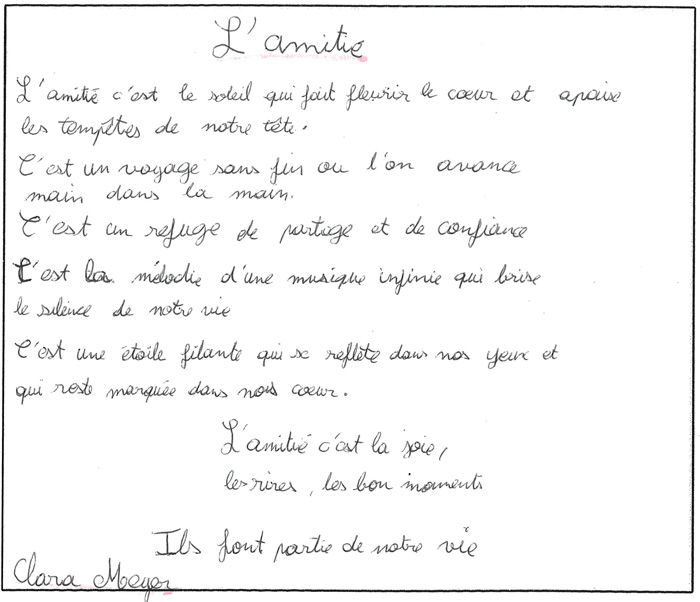 L'amitié
L'amitié c'est le soleil qui fait fleurir le cœur et apaise
les tempêtes de notre tête.
C'est un voyage sans fin ou l'on avance
main dans la main.
C'est un refuge de partage et de confiance
C'est la mélodie d'une musique infinie qui brise
le silence de notre vie
C'est une étoile filante qui se reflète dans nos yeux et
qui reste marquée dans nos cœur.
L'amitié c'est la joie,
les rires, les bon moments
Ils font partie de notre vie
Clara Meyer